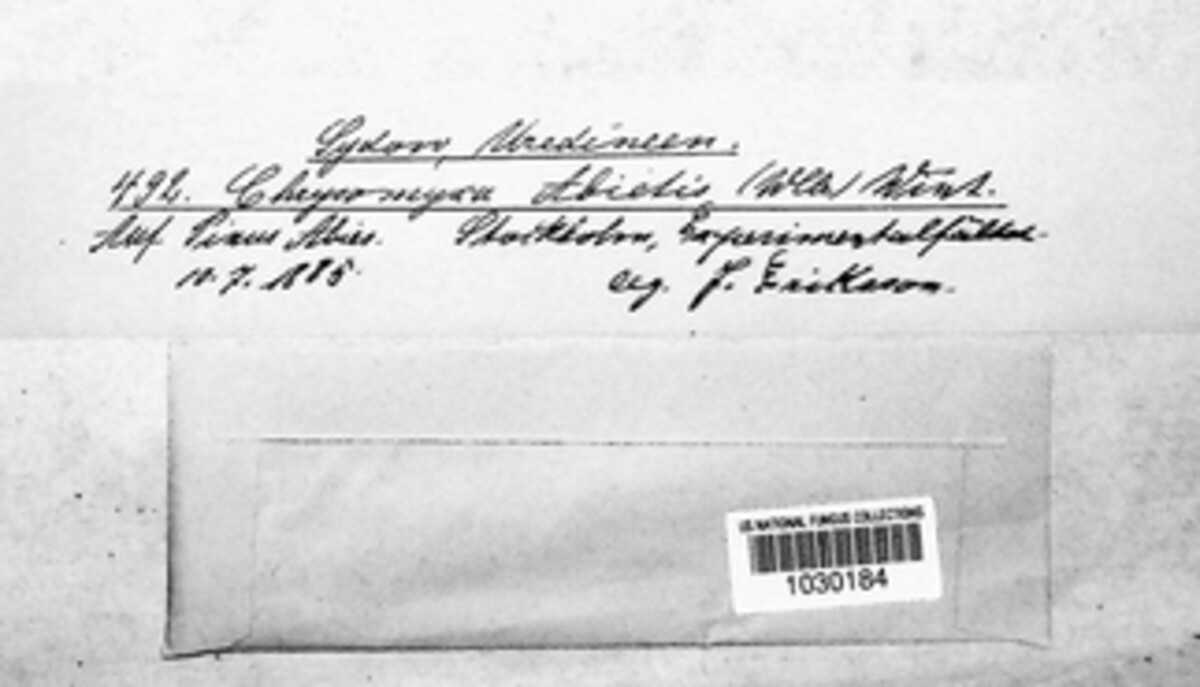 Sydow, Uredineen.
492. Chrysomyxa Abietis (Wllr) Wint.
Auf Pinus Abies. Stockholm, Experimentalfältet.
10. 7. 1885. leg. J. Eriksson.
US NATIONAL FUNGUS COLLECTIONS
1030184